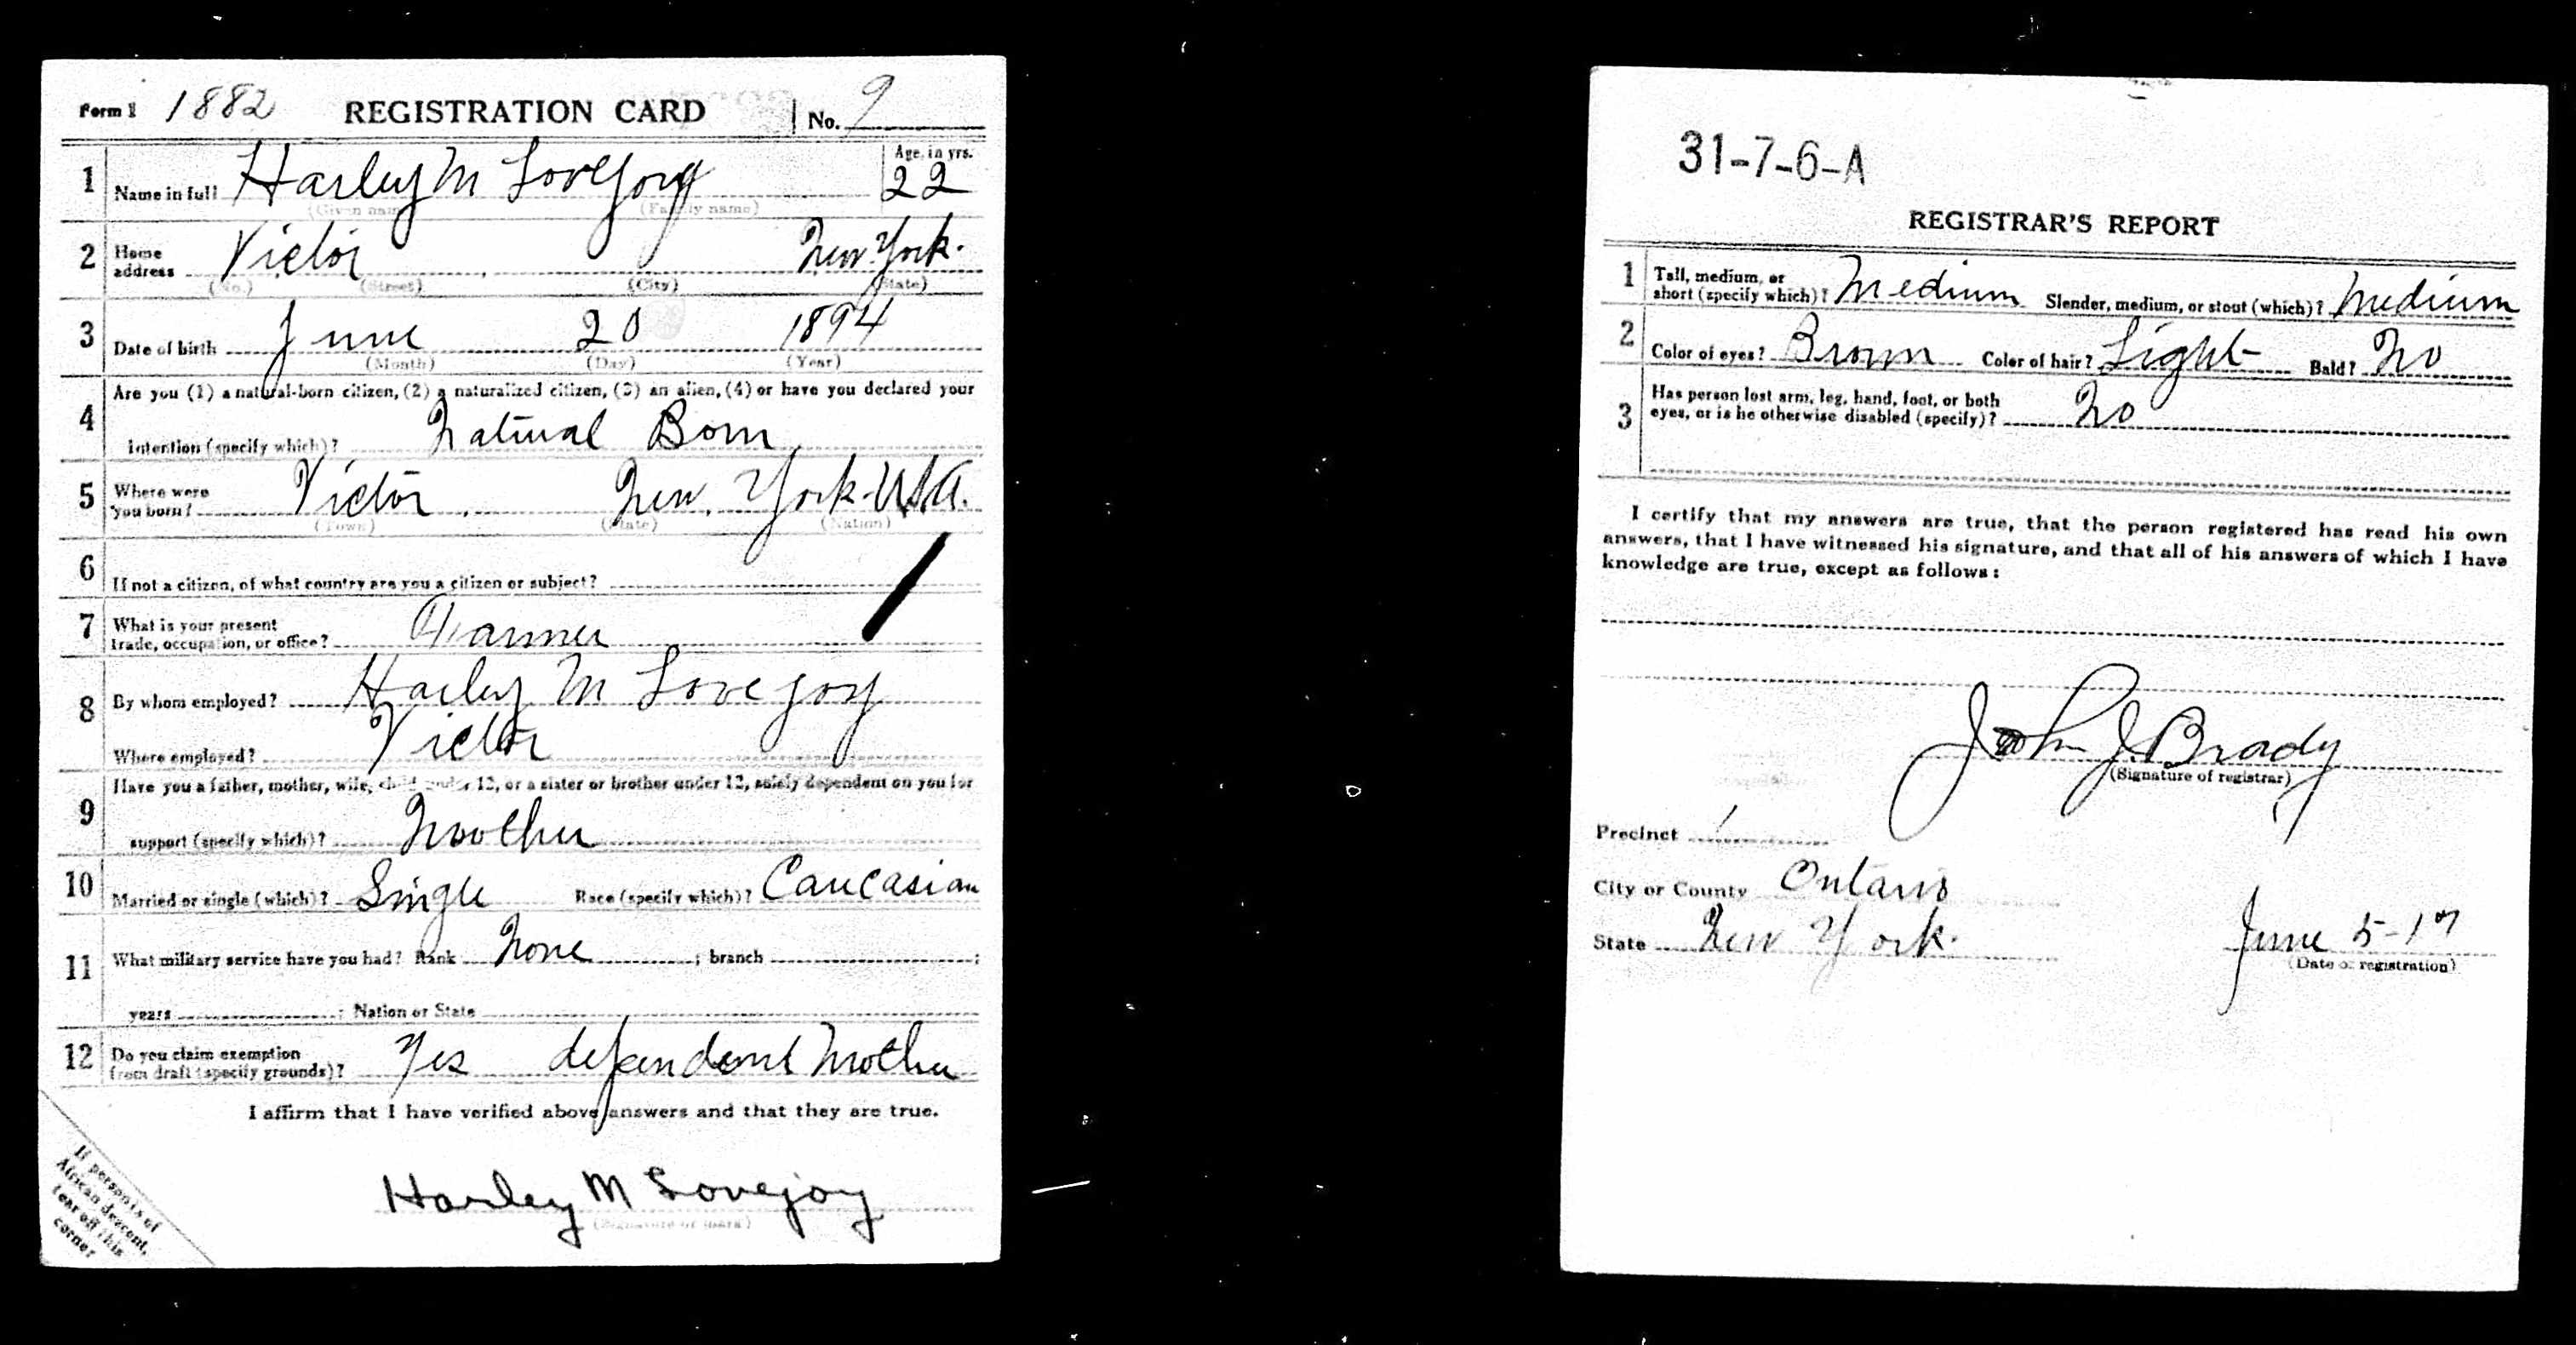 Form 1 1882 REGISTRATION CARD No. 9
1 Name in full Harley M Lovejoy Age, in yrs. 22
(Given name) (Family name)
2 Home address Victor New York.
(No.) (Street) (City) (State)
3 Date of birth June 20 1894
(Month) (Day) (Year)
4 Are you (1) a natural-born citizen, (2) a naturalized citizen, (3) an alien, (4) or have you declared your
intention (specify which)? Natural Born
5 Where were you born? Victor. New. York-U.S.A.
(Town) (State) (Nation)
6 If not a citizen, of what country are you a citizen or subject?
7 What is your present trade, occupation, or office? Farmer
8 By whom employed? Harley M Lovejoy
Where employed? Victor
9 Have you a father, mother, wife, child under 12, or a sister or brother under 12, solely dependent on you for
support (specify which)? Mother
10 Married or single (which)? Single Race (specify which)? Caucasian
11 What military service have you had? Rank None ; branch ;
years ; Nation or State
12 Do you claim exemption from draft (specify grounds)? Yes dependent Mother
I affirm that I have verified above answers and that they are true.
Harley M Lovejoy
(Signature or mark)
If person is of
African descent,
tear off this
corner
31-7-6-A
REGISTRAR'S REPORT
1 Tall, medium, or short (specify which)? Medium Slender, medium, or stout (which)? Medium
2 Color of eyes? Brown Color of hair? Light Bald? No
3 Has person lost arm, leg, hand, foot, or both
eyes, or is he otherwise disabled (specify)? No
I certify that my answers are true, that the person registered has read his own
answers, that I have witnessed his signature, and that all of his answers of which I have
knowledge are true, except as follows:
John J. Brady
(Signature of registrar)
Precinct 1
City or County Ontario
State New York. June 5-17
(Date of registration)